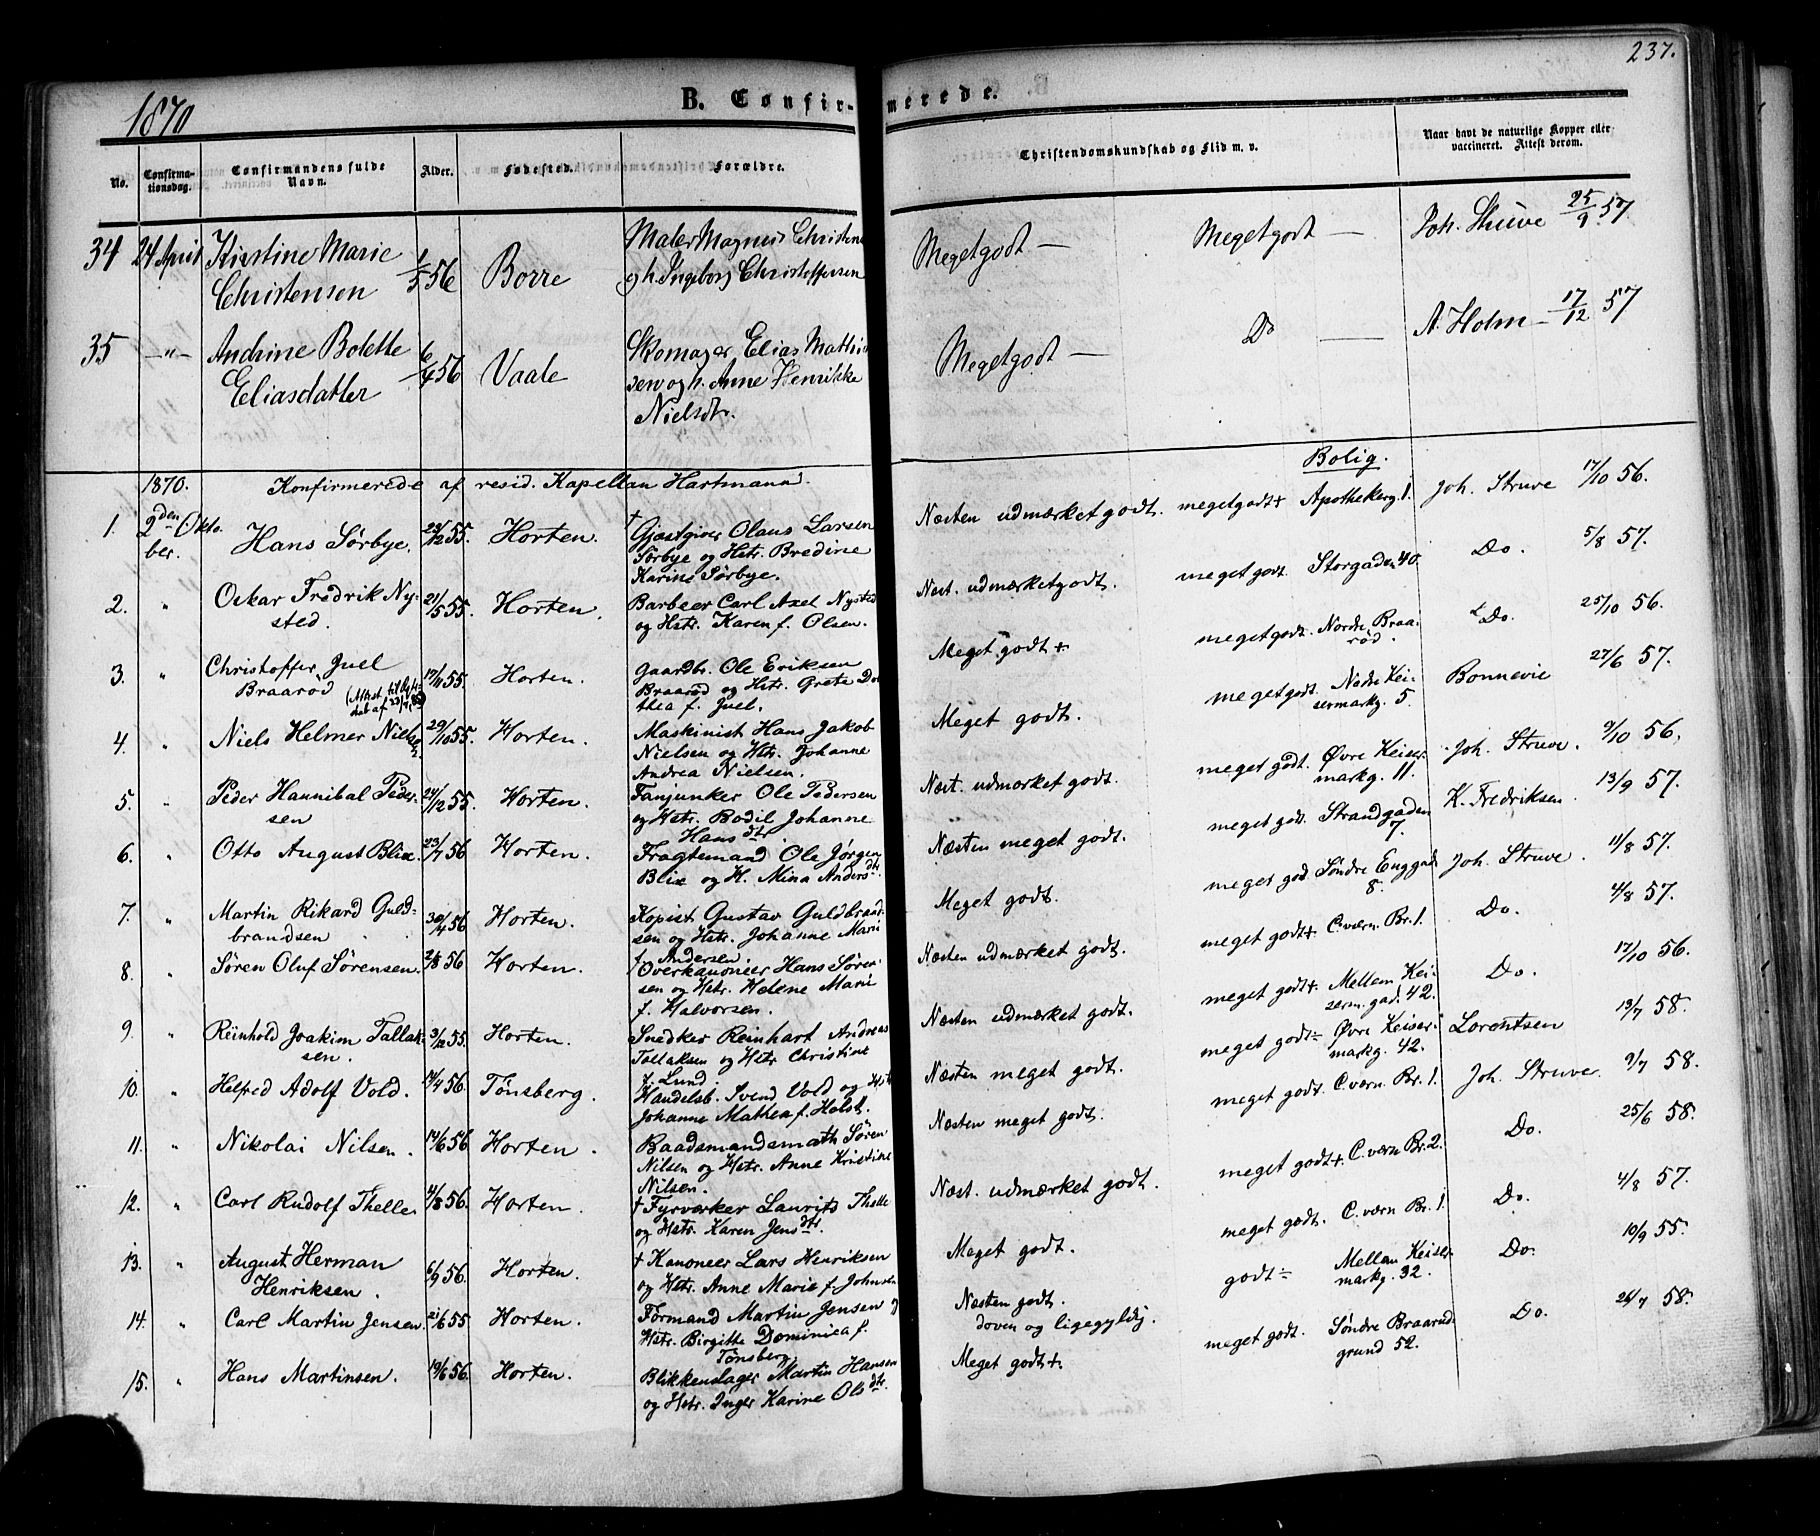 237.
1870
B. Confirmerede.
No.
Confirmationsdag.
Confirmandens fulde Navn.
Alder.
Fødested.
Forældre.
Christendomskundskab og Flid m. v.
Naar havt de naturlige Kopper eller vaccineret. Attest derom.
34 24 April Kirstine Marie Christensen 56 Borre Maler Magnus Christens og h. Ingeborg Christoffersen Megetgodt — Megetgodt — Joh. Struve 25/9 57
35 —"— Andrine Bolette Eliasdatter 56 Vaale Skomager Elias Mathi sen og h. Anne Henrikke Nielsdtr. Megetgodt — Do — A. Holm — 17/12 57
1870. Konfirmerede af resid. Kapellan Hartmann.
Bolig.
1. 2den Oktober. Hans Sørbye. 55. Horten. † Gjæstgiver Olaus Larsen Sørbye og Hstr. Bredine Karine Sørbye. Næsten udmærket godt. megetgodt+ Apothekerg. 1. Joh. Struve 17/10 56.
2. " Oskar Fredrik Nysted. 21/5 55. Horten. Barbeer Carl Axel Nysted og Hstr. Karen f. Olsen. Næst. udmærketgodt. meget godt. Storgaden 40. Do. 5/8 57.
3. " Christoffer Juel Braarød 17/11 55. Horten. Gaardbr. Ole Eriksen Braarød og Hstr. Grete Dorthea f. Juel. Meget godt + megetgodt. Nordre Braarød. Do. 25/10 56.
4. " Niels Helmer Nielsen 29/10 55. Horten. Maskinist Hans Jakob Nielsen og Hstr. Johanne Andrea Nielsen. Meget godt. megetgodt. Nedre Keisermarkg. 5. Bonnevie 27/6 57.
5. " Peder Hannibal Pedersen 24/12 55. Horten. Fanjunker Ole Pedersen og Hstr. Bodil Johanne Hansdtr. Næst. udmærket godt. meget godt. Øvre Keisermarkg. 11. Joh. Struve. 9/10 56.
6. " Otto August Blix. 23/7 56 Horten. Fragtemand Ole Jørgen Blix og H. Mina Andersdtr. Næsten meget godt. meget godt. Strandgaden 7. K. Fredriksen. 13/9 57.
7. " Martin Rikard Guldbrandsen 30/4 56 Horten. Kopist Gustav Guldbrandsen og Hstr. Johanne Marie f. Andersen. Meget godt. meget god. Søndre Enggad. 8. Joh. Struve. 11/8 57.
8. " Søren Oluf Sørensen. 56 Horten. Overkanoneer Hans Sørensen og Hstr. Helene Marie f. Halvorsen. Næsten udmærket godt. meget godt+ C. værn. Br. 1. Do. 4/8 57.
9. " Reinhold Joakim Tallaksen. 31/12 55. Horten. Snedker Reinhart Andreas Tallaksen og Hstr. Christine f. Lund. Næsten udmærket godt. meget godt+ Mellem Keiserm. gad. 42. Do. 17/10 56.
10. " Helfred Adolf Vold. 56. Tønsberg. Handelsb. Svend Vold og Hstr Johanne Mathea f. Holst. Næsten meget godt. meget godt÷ Øvre Keisermarkg. 42. Lorentsen 13/7 58.
11. " Nikolai Nilsen. 56 Horten. Baadsmandsmath Søren Nilsen og Hstr. Anne Kristine Nilsen. Næsten meget godt. meget godt. C. værn. Br. 1. Joh. Struve. 9/7 58.
12. " Carl Rudolf Thelle. 4/8 56. Horten. † Fyrværker Laurits Thelle og Hstr. Karen Jensdtr. Næst. udmærket godt. meget godt+. C. værn Br. 2. Do. 25/6 58.
13. " August Herman Henriksen. 6/9 56. Horten. † Kanoneer Lars Henriksen og Hstr. Anne Marie f. Johnsen Meget godt. meget godt. C. værn Br. 1. Do. 4/8 57.
14. " Carl Martin Jensen. 21/6 55 Horten. Formand Martin Jensen og Hstr. Birgitte Dominica f. Tønsberg. Næsten godt. doven og ligegyldig. godt÷ Mellem Keisermarkg. 32. Do. 10/9 55.
15. " Hans Martinsen. 19/6 56. Horten. Blikkenslager Martin Hansen og Hstr. Inger Karine Olsdtr. Meget godt+. meget godt. Søndre Braarudgrund 52. Do. 26/7 58.